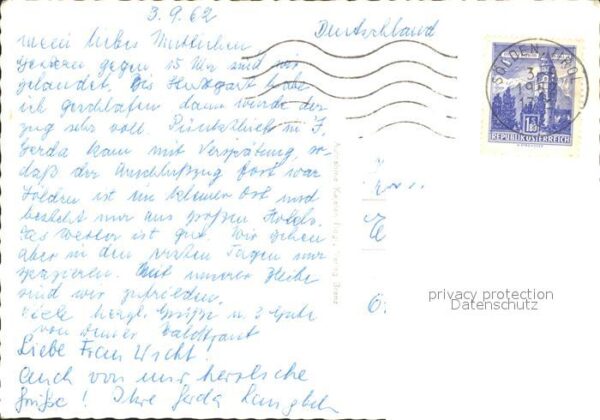 3.9.62
Deutschland
mein liebes Muttichen
Gestern gegen 15 Uhr sind wir
gelandet. Bis Stuttgart habe
ich geschlafen dann wurde der
Zug sehr voll. Pünktlich in J.
Gerda kam mit Verspätung, so
daß der Anschlußzug fort war
Sölden ist ein kleiner Ort und
besteht nur aus großen Hotels.
Das Wetter ist gut. Wir gehen
aber in den ersten Tagen nur
spazieren. Mit unserer Bleibe
sind wir zufrieden.
Viele herzl. Grüße u. 3 Gute
von Deiner Waldtraut
Liebe Frau Wicht!
Auch von mir herzliche
Grüße! Ihre Gerda
SÖLDEN, TIROL
1.80
REPUBLIK ÖSTERREICH
privacy protection
Datenschutz